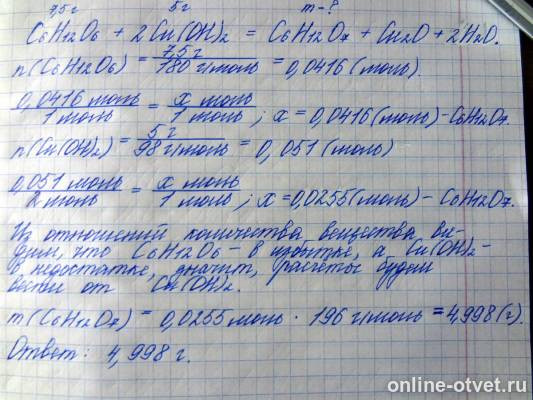 7,5г 5г m-?
C6H12O6 + 2Cu(OH)2 = C6H12O7 + Cu2O + 2H2O.
n(C6H12O6) = 7,5г / 180 г/моль = 0,0416 (моль).
0,0416 моль / 1 моль = x моль / 1 моль ; x = 0,0416 (моль) - C6H12O7.
n(Cu(OH)2) = 5г / 98 г/моль = 0,051 (моль)
0,051 моль / 2 моль = x моль / 1 моль ; x = 0,0255 (моль) - C6H12O7.
Из отношений количества вещества ви-
дим, что C6H12O6 - в избытке, а Cu(OH)2 -
в недостатке, значит, расчёты будем
вести от Cu(OH)2.
m(C6H12O7) = 0,0255 моль · 196 г/моль = 4,998 (г).
Ответ: 4,998 г.
online-otvet.ru